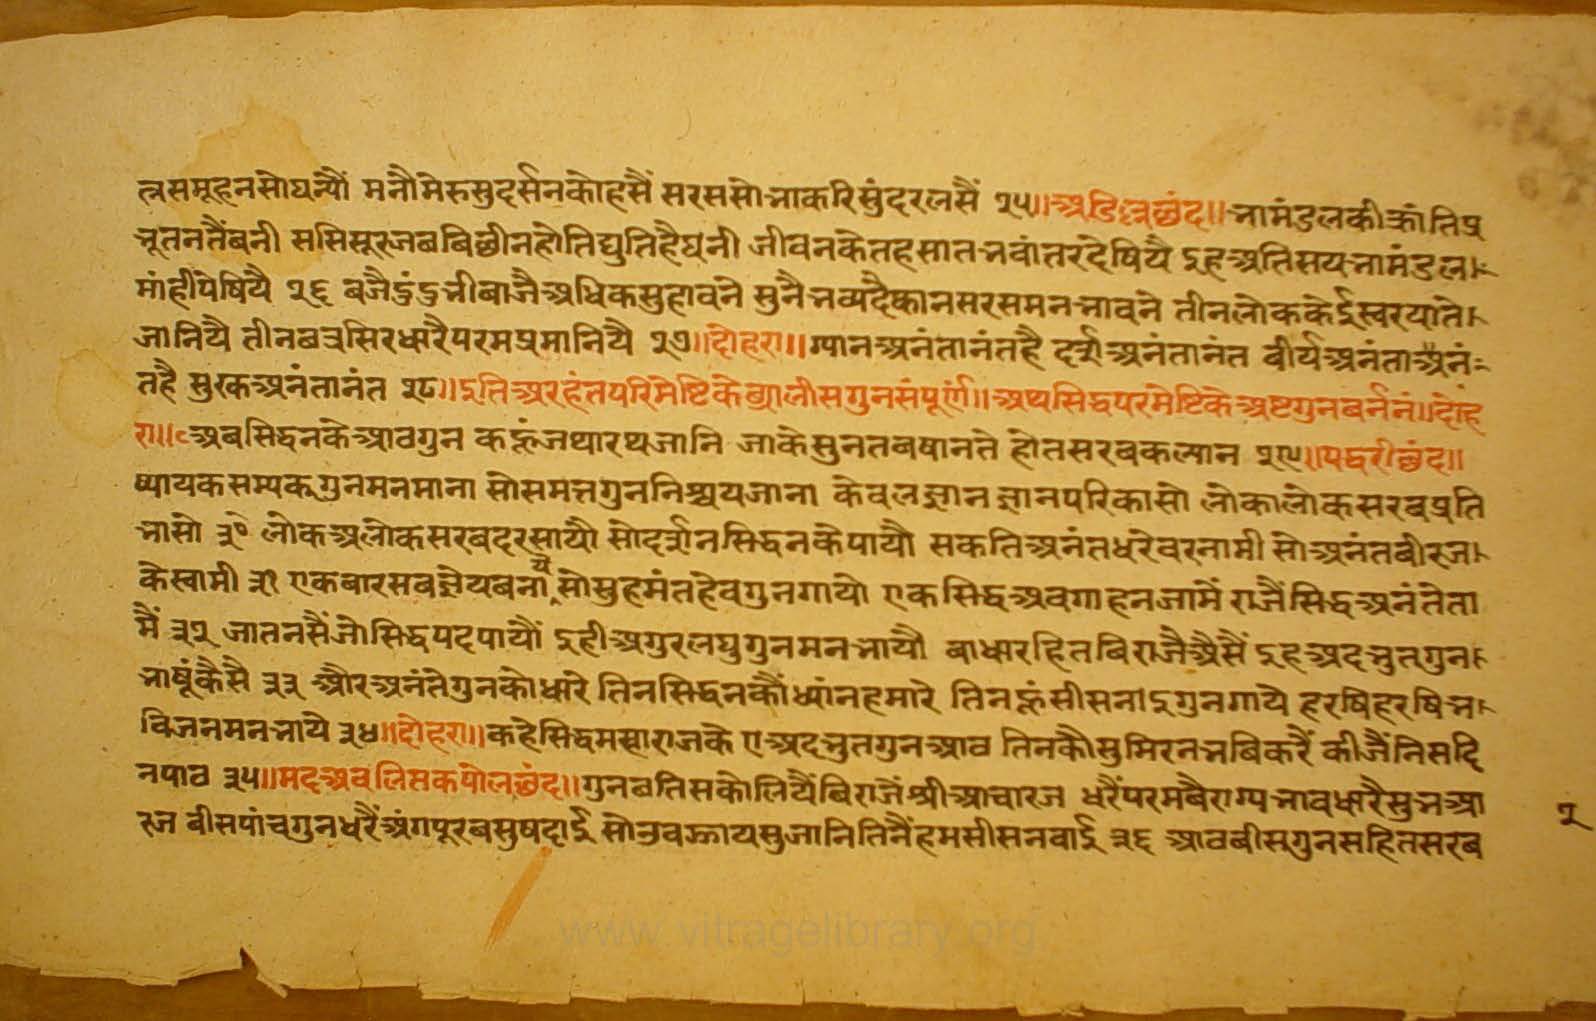 त्नसमूहनसोघन्यौं मनौमेरुसुदर्सनकोहसैं सरससोभाकरिसुंदरलसैं २५॥अडिल्लछंद॥भामंडलकीक्रांतिप्र
भूतनतैंबनी ससिसूरजबबिछीनहोतिद्युतिहैघनी जीवनकेतहसातभवांतरदेषियै इहअतिसयभामंडल।
मांहींपेषियै २६ बजैदुंदुभीबाजैअधिकसुहावने सुनैभव्यदैकानसरसमनभावने तीनलोककेईस्वरयाते।
जानियै तीनबत्रसिरधारैपरमप्रमानियै २७॥दोहरा॥ग्यानअनंतानंतहै दर्शअनंतानंत बीर्यअनंताअनं
तहै सुरकअनंतानंत २८॥इतिअरहंतपरिमेष्टिकेछ्यालीसगुनसंपूर्ण॥अथसिद्धपरमेष्टिकेअष्टगुनबर्ननं॥दोह
रा॥अबसिद्धनकेआठगुन कहूंजथारथजानि जाकेसुनतबषानते होतसरबकल्यान २९॥पद्धरीछंद॥
ष्यायकसम्यकगुनमनमाना सोसमत्तगुननिश्चयजाना केवलज्ञानज्ञानपरिकासो लोकालोकसरबप्रति
भासो ३० लोकअलोकसरबदरसायौ सोदर्शनसिद्धनकेपायौ सकतिअनंतधरेवरनामी सोअनंतबीरज।
केस्वामी ३१ एकबारसबज्ञेयबनायै सोसुहमंतहेवगुनगायो एकसिद्धअवगाहनजामें राजैंसिद्धअनंतेता
मैं ३२ जातनसैंजोसिद्धपदपायौं इहीअगुरलघुगुनमनभायौ बाधारहितबिराजैअैसैं इहअदभुतगुन।
भाषूंकैसै ३३ औरअनंतेगुनकोधारे तिनसिद्धनकौंध्यांनहमारे तिनकूंसीसनाइगुनगाये हरषिहरषिभ।
विजनमनभाये ३४॥दोहरा॥कहेसिद्धमहाराजके एअदभुतगुनआठ तिनकौसुमिरनभबिकरैं कीजैंनिसदि
नपाठ ३५॥मदअवलिप्तकपोलछंद॥गुनबतिसकोलियैंबिराजैंश्रीआचारज धरैंपरमबैराग्यभावधारैसुभआ
रज बीसपांचगुनधरैंअंगपूरबसुषदाई सोउवझायसुजानितिनैंहमसीसनवाई ३६ आठबीसगुनसहितसरब
२
www.vitragelibrary.org